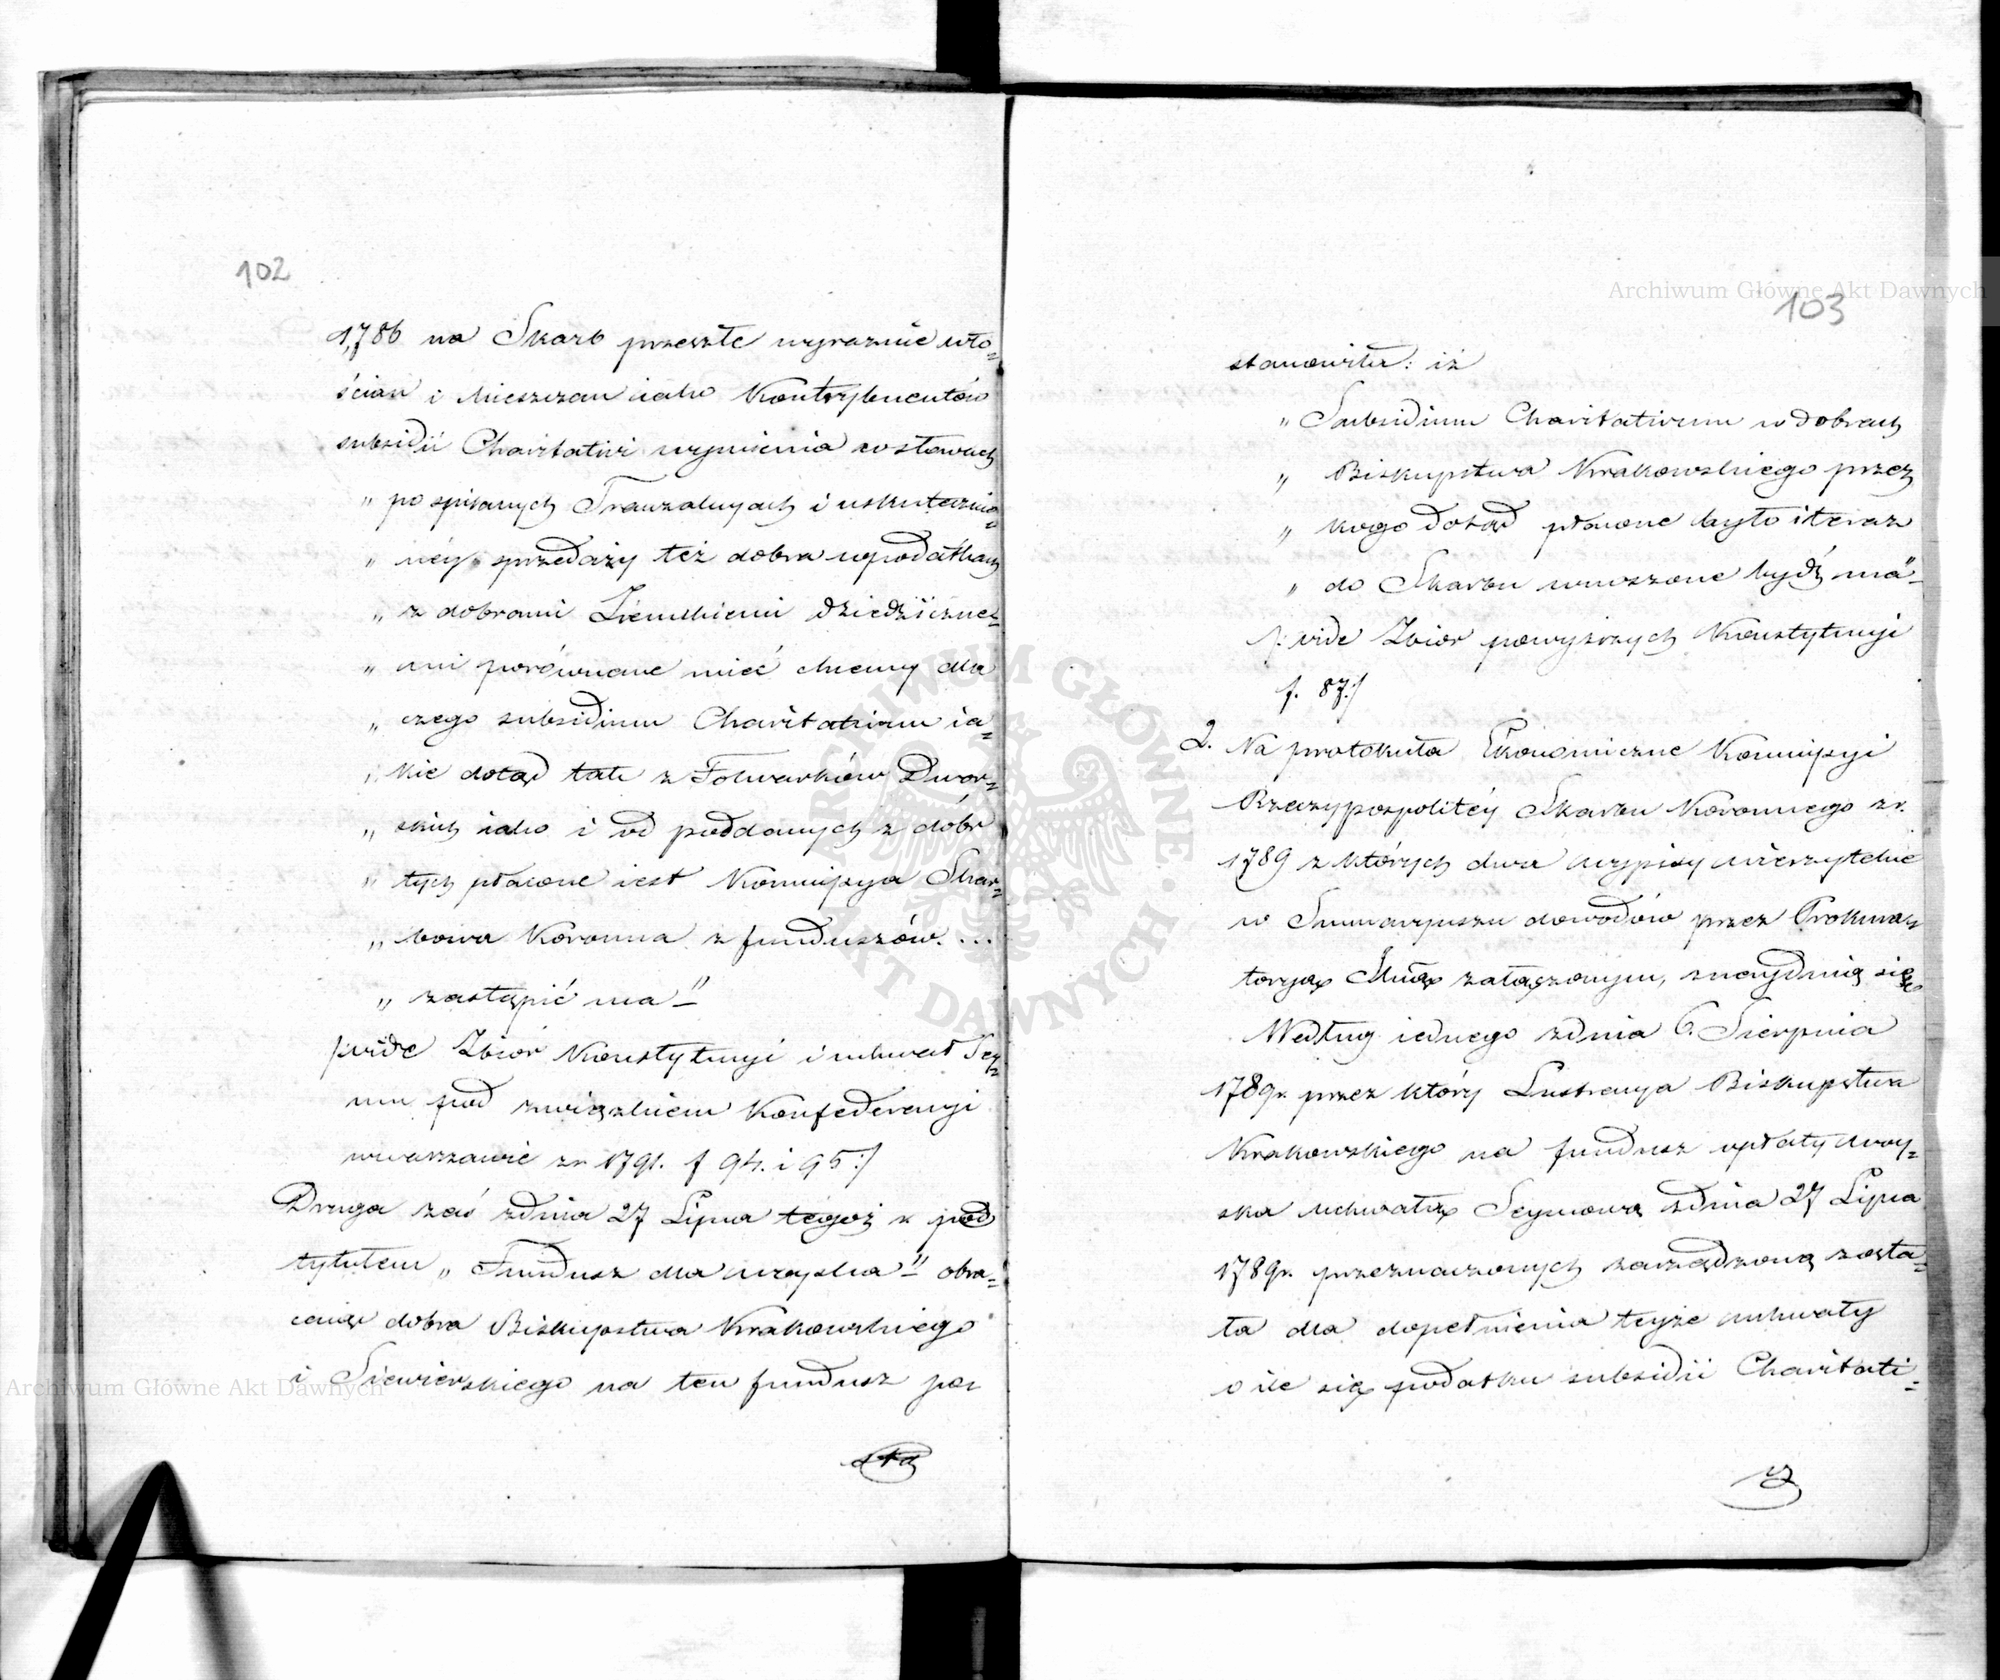 102
1786 na Skarb przeszłe wyraznie wło=
ścian i Mieszczan iako Kontrybuentów
subsidii Charitativi wymienia w słowach
„ po spisanych Tranzakcyach i uskutecznio=
„ néy sprzedaży też dobra w podatkach
„ z dobrami Ziemskiemi dziedzicznee=
„ mi porównane mieć chcemy dla
„ czego subsidium Charitativum ia=
„ kie dotąd tak z Folwarków Dwor=
„ skich iako i od poddanych z dóbr
„ tych płacone iest Kommissya Skar=
„ bowa Koronna z funduszów. ...
„ zastąpić ma"
/:vide Zbiór Konstytucyi i uchwał Sey=
mu pod związkiem Konfederacyi
w warszawie z r. 1791. f 94. i 95:/
Druga zaś z dnia 27 Lipca tegoż r pod
tytułem „ Fundusz dla woyska" obra=
caiąc dobra Biskupstwa Krakowskiego
i Siewierskiego na ten fundusz po=
sta
103
stanowiła: iż
„ Subsidium Charitativum w dobrach
„ Biskupstwa Krakowskiego przez
„ kogo dotąd płacone było i teraz
„ do Skarbu wnoszone bydź ma"
/: vide Zbior powyższych Konstytucyi
f. 87:/
2. Na protokuła Ekonomiczne Kommissyi
Rzeczypospolitéy Skarbu Koronnego z r.
1789 z których dwa wypisy wierzytelne
w Summaryuszu dowodów przez Prokura=
toryą Skar załączonym, znayduią się
Według iednego z dnia 6. Sierpnia
1789 r. przez który Lustracya Biskupstwa
Krakowskiego na fundusz opłaty woy=
ska uchwałą Seymową z dnia 27 Lipca
1789 r. przeznaczonych zarządzoną zosta=
ła dla dopełnienia teyże uchwały
o ile się podatku subsidii Charitati=
v
Archiwum Główne Akt Dawnych
Archiwum Główne Akt Dawnych
ARCHIWUM GŁÓWNE AKT DAWNYCH